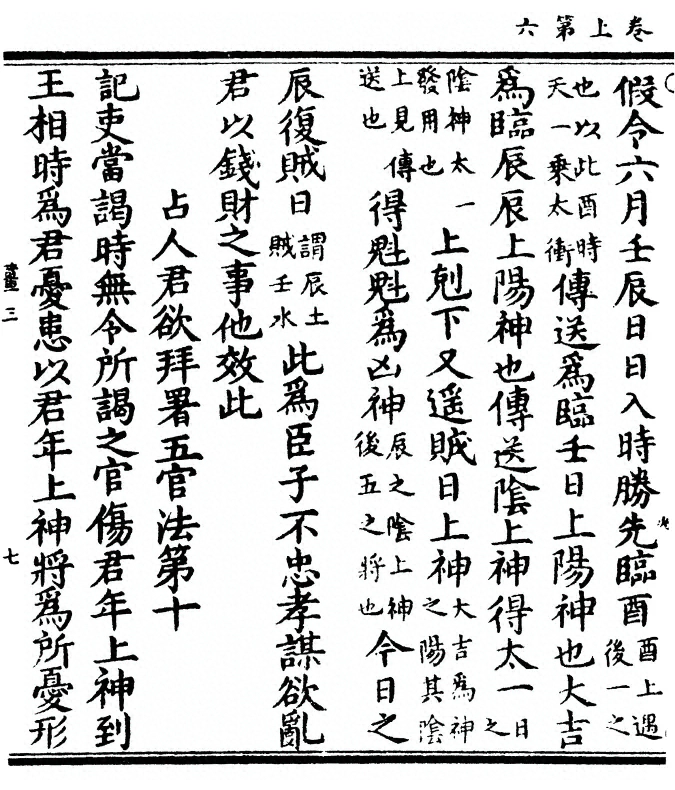 卷上第六
假令六月壬辰日日入時勝先臨酉酉上遇後一之
也以此酉時天一乘太衝傳送爲臨壬日上陽神也大吉
爲臨辰辰上陽神也傳送陰上神得太一日之
陰神太一發用也上剋下又遥賊日上神大吉爲神之陽其陰
上見傳送也得魁魁爲凶神辰之陰上神後五之將也今日之
辰復賊日謂辰土賊壬水此爲臣子不忠孝謀欲亂
君以錢財之事他效此
占人君欲拜署五官法第十
記吏當謁時無令所謁之官傷君年上神到
王相時爲君憂患以君年上神將爲所憂形
三
七